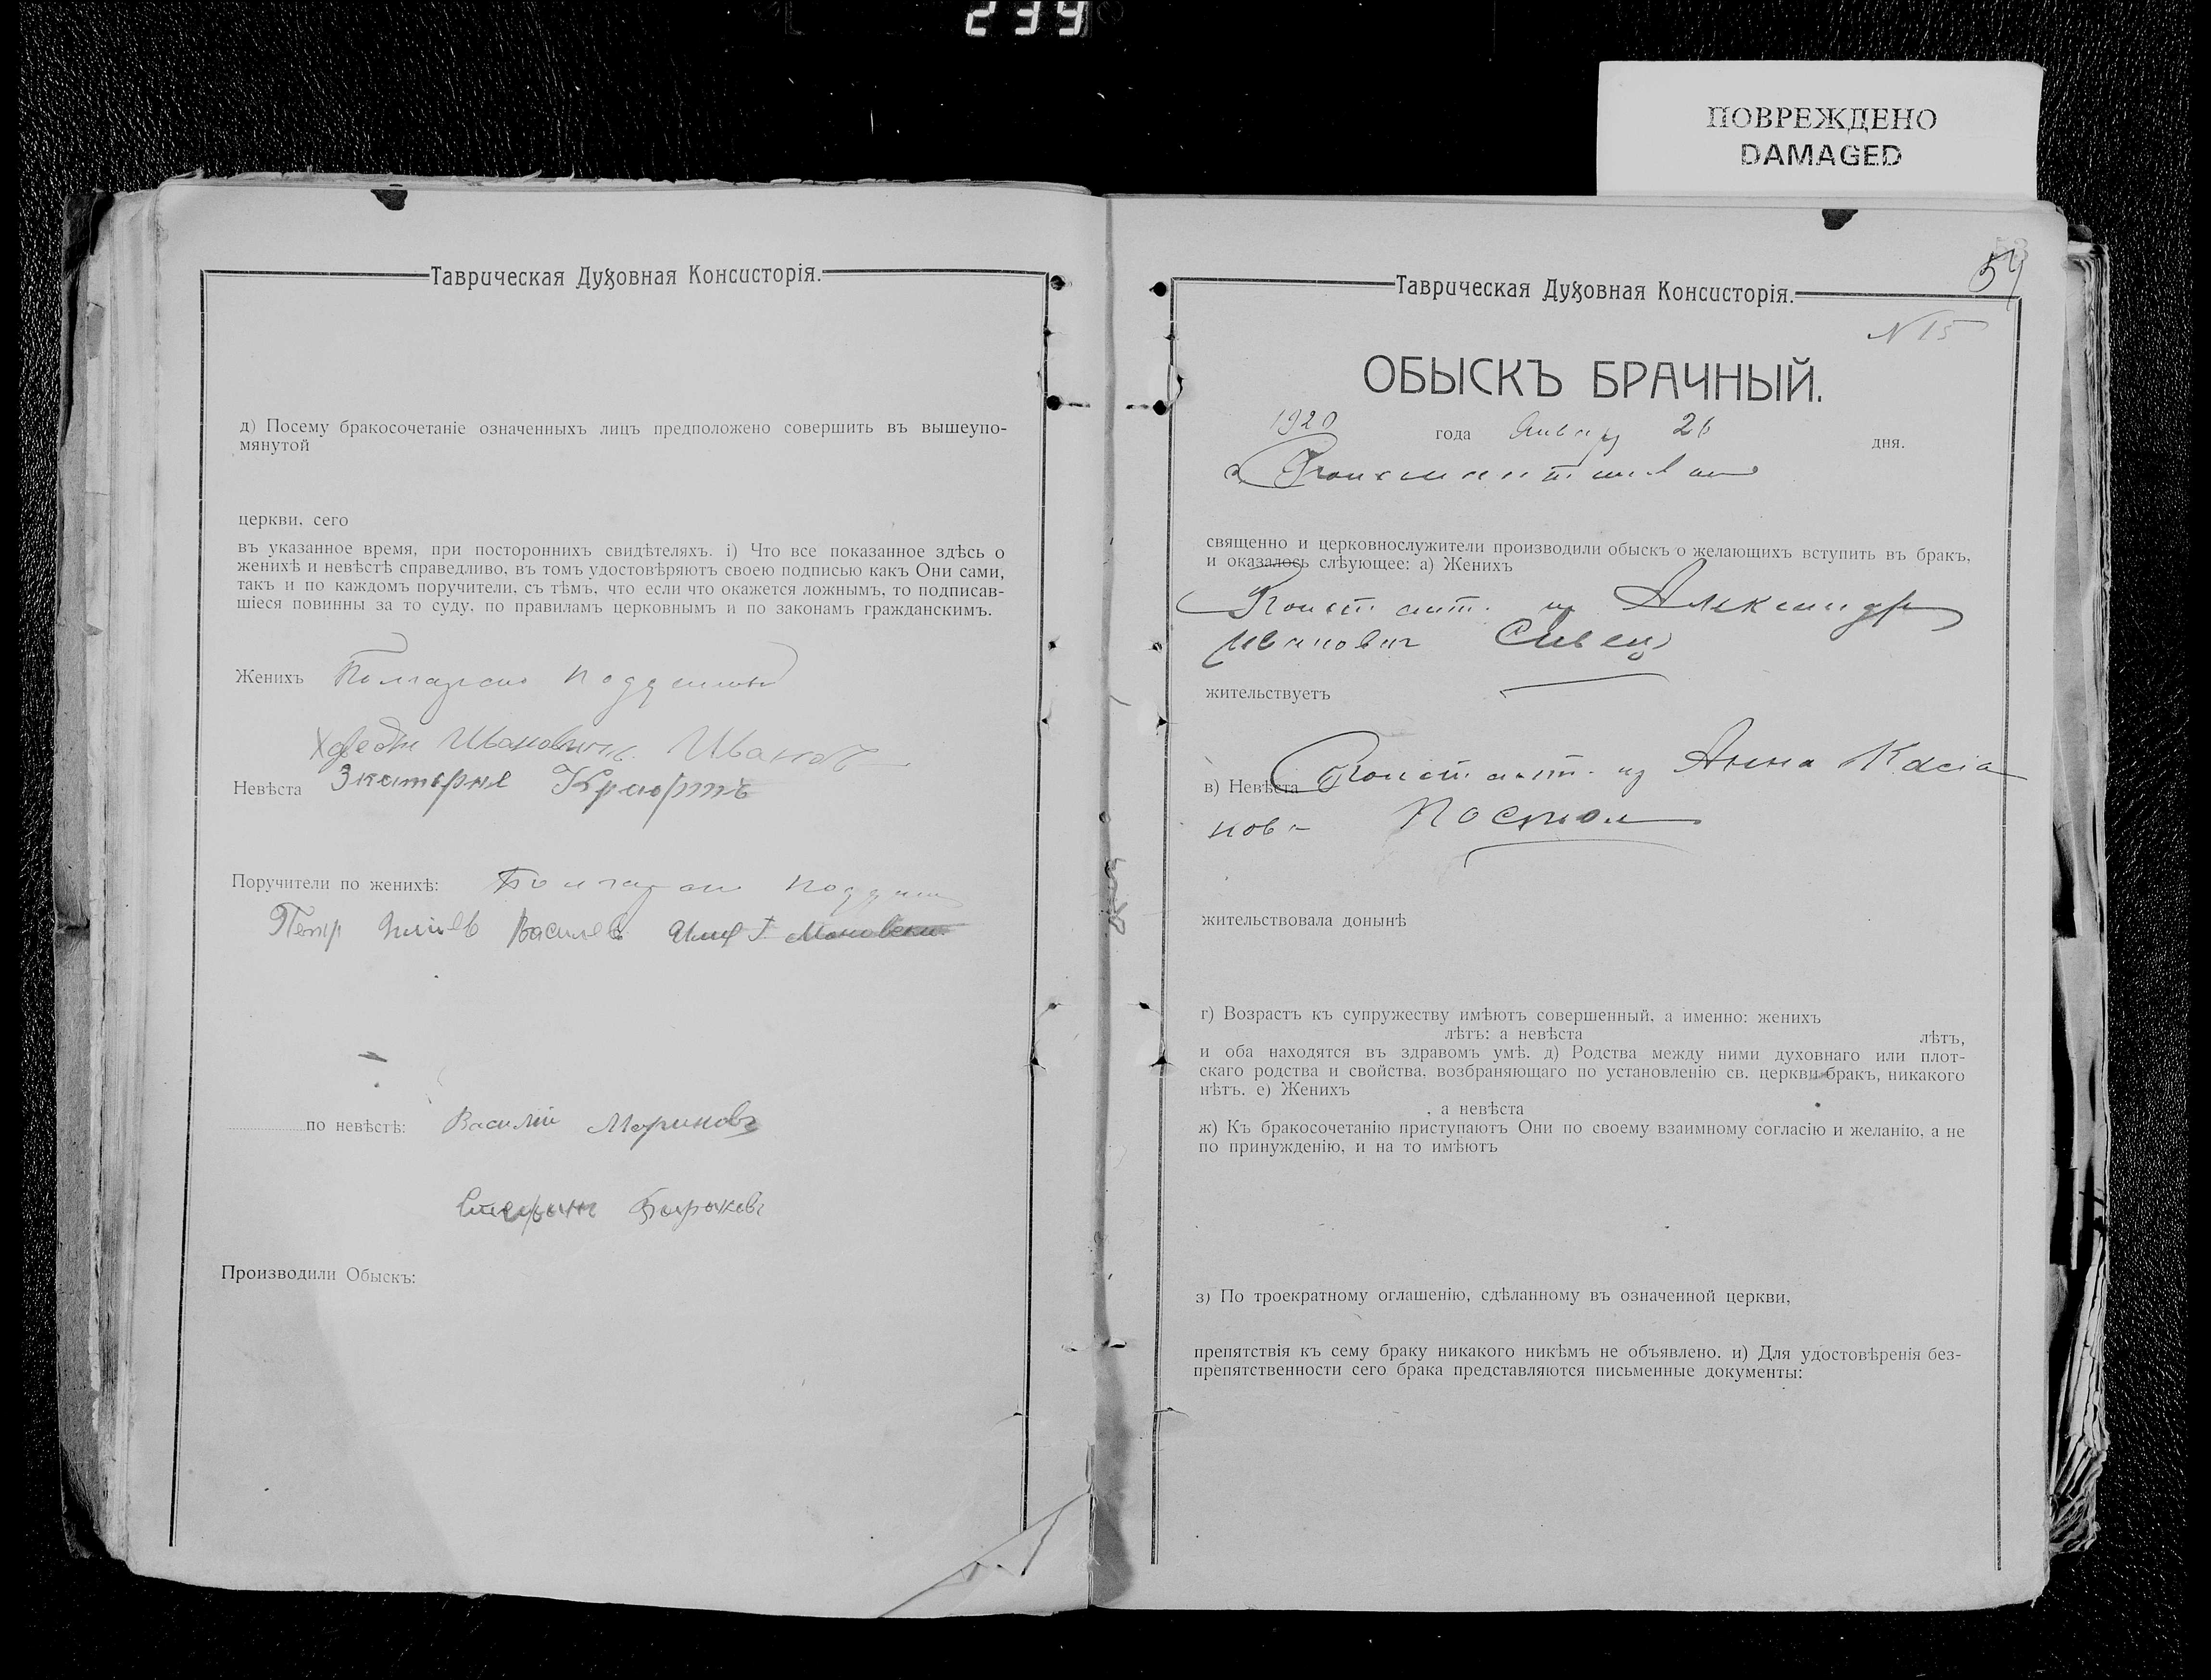 239
ПОВРЕЖДЕНО
DAMAGED
Таврическая Духовная Консисторія.
д) Посему бракосочетаніе означенныхъ лицъ предположено совершить въ вышеупо-
мянутой
церкви, сего
въ указанное время, при постороннихъ свидѣтеляхъ. і) Что все показанное здѣсь о
женихѣ и невѣстѣ справедливо, въ томъ удостовѣряютъ своею подписью какъ Они сами,
такъ и по каждомъ поручители, съ тѣмъ, что если что окажется ложнымъ, то подписав-
шіеся повинны за то суду, по правиламъ церковнымъ и по законамъ гражданскимъ.
Женихъ
Ивановичъ Ивановъ
Невѣста
Поручители по женихѣ:
Петр Василев
по невѣстѣ: Василій Мариновъ
Стефанъ
Производили Обыскъ:
Таврическая Духовная Консисторія.
54
N 15
ОБЫСКЪ БРАЧНЫЙ.
1920 года Январ 26 дня.
священно и церковнослужители производили обыскъ о желающихъ вступить въ бракъ,
и оказалось слѣующее: а) Женихъ
Конст ант. Александр
Иванович Сивец
жительствуетъ
в) Невѣста Конст ант. Анна Касіа
нова Постнол
жительствовала донынѣ
г) Возрастъ къ супружеству имѣютъ совершенный, а именно: женихъ
лѣтъ: а невѣста лѣтъ,
и оба находятся въ здравомъ умѣ. д) Родства между ними духовнаго или плот-
скаго родства и свойства, возбраняющаго по установленію св. церкви бракъ, никакого
нѣтъ. е) Женихъ
, а невѣста
ж) Къ бракосочетанію приступаютъ Они по своему взаимному согласію и желанію, а не
по принужденію, и на то имѣютъ
з) По троекратному оглашенію, сдѣланному въ означенной церкви,
препятствія къ сему браку никакого никѣмъ не объявлено. и) Для удостовѣренія без-
препятственности сего брака представляются письменные документы: